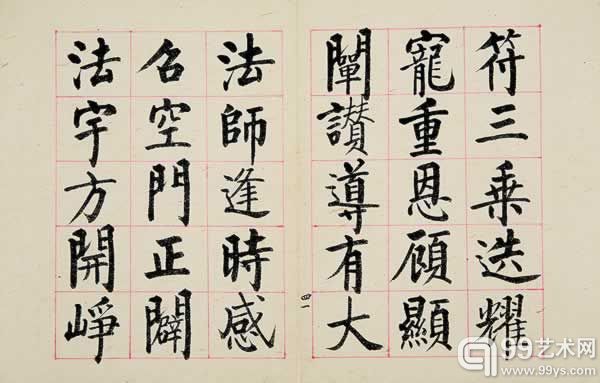 符三乗迭耀
寵重恩顧顯
闡讚導有大
四一
法師逢時感
召空門正闢
法宇方開崢
99艺术网
www.99ys.com